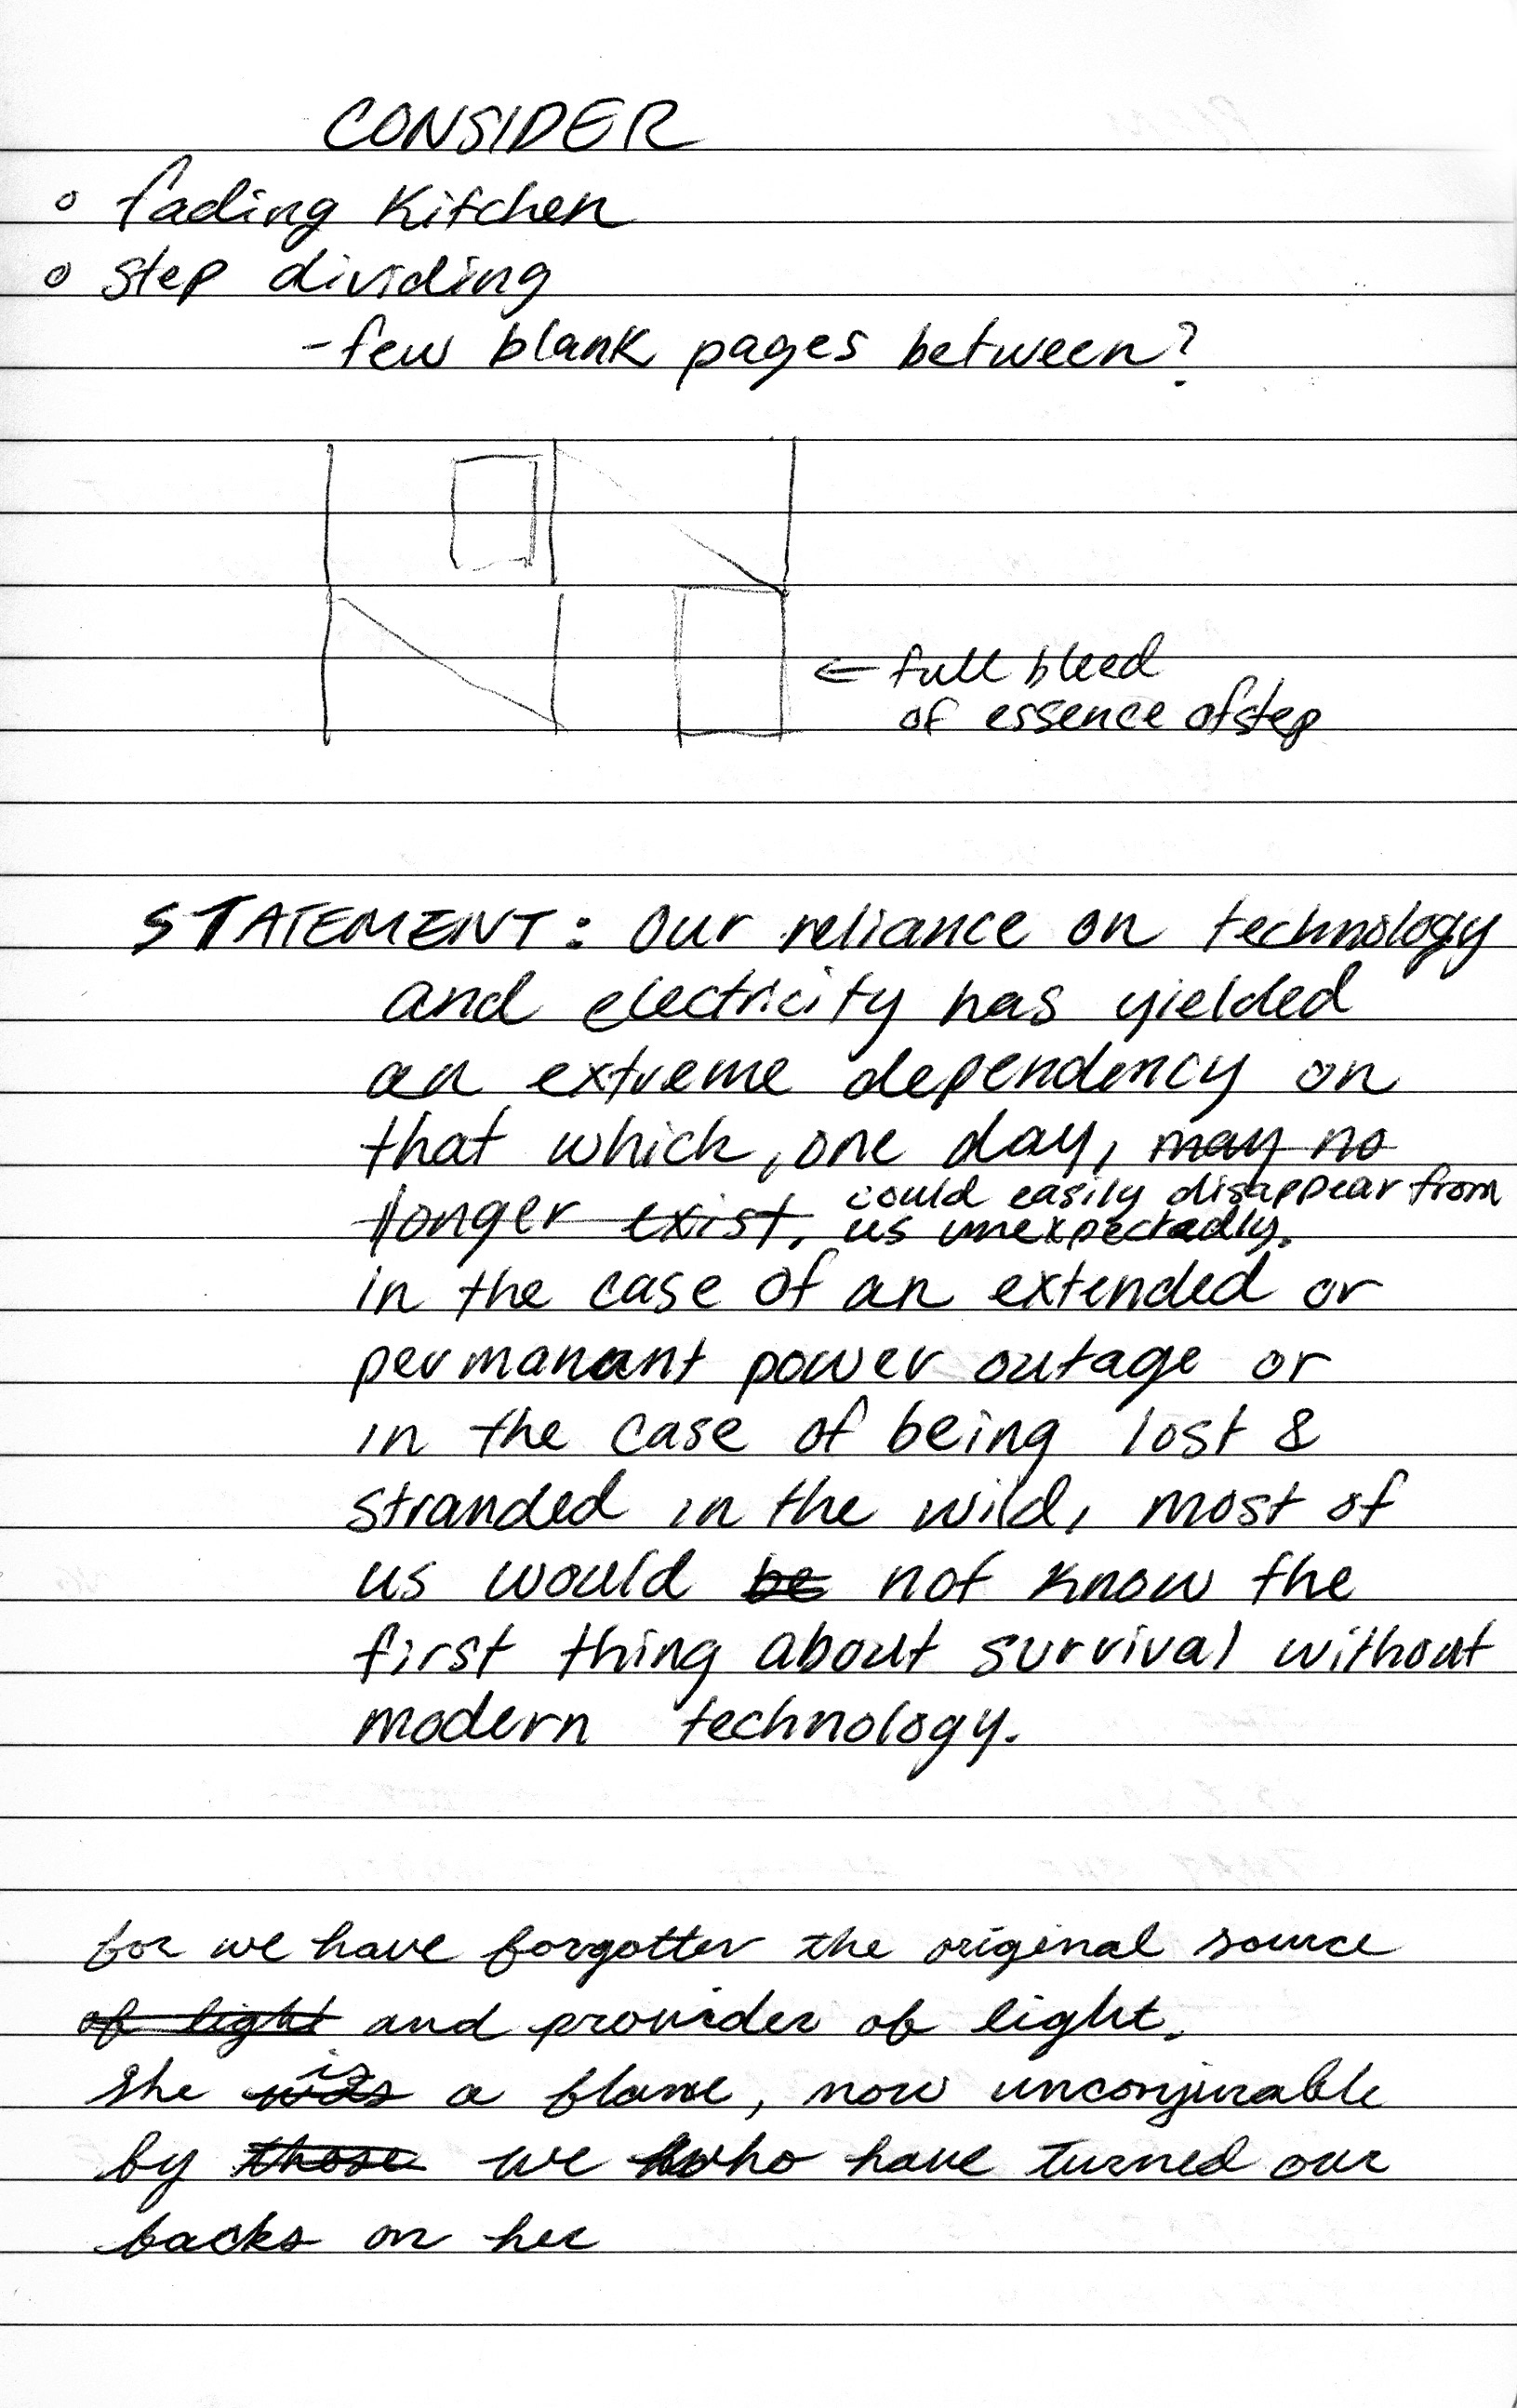 CONSIDER
◦ fading kitchen
◦ step dividing
- few blank pages between?
← full bleed
of essence of step
STATEMENT: Our reliance on technology
and electricity has yielded
an extreme dependency on
that which, one day, may no
longer exist. could easily disappear from
us unexpectedly.
in the case of an extended or
permanant power outage or
in the case of being lost &
stranded in the wild, most of
us would be not know the
first thing about survival without
modern technology.
for we have forgotten the original source
of light and provider of light.
She was is a flame, now unconjurable
by those we who have turned our
backs on her